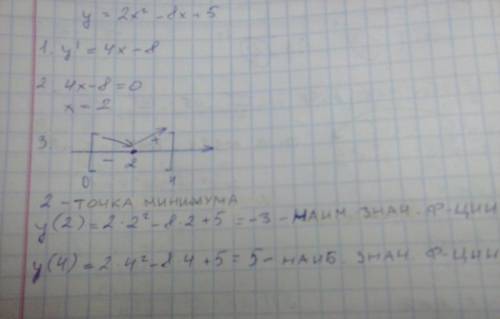 y = 2x² - 8x + 5
1. y' = 4x - 8
2. 4x - 8 = 0
x = 2
3.
- 2 +
0 4
2 - ТОЧКА МИНИМУМА
y(2) = 2·2² - 8·2 + 5 = -3 - НАИМ. ЗНАЧ. Ф-ЦИИ
y(4) = 2·4² - 8·4 + 5 = 5 - НАИБ. ЗНАЧ. Ф-ЦИИ